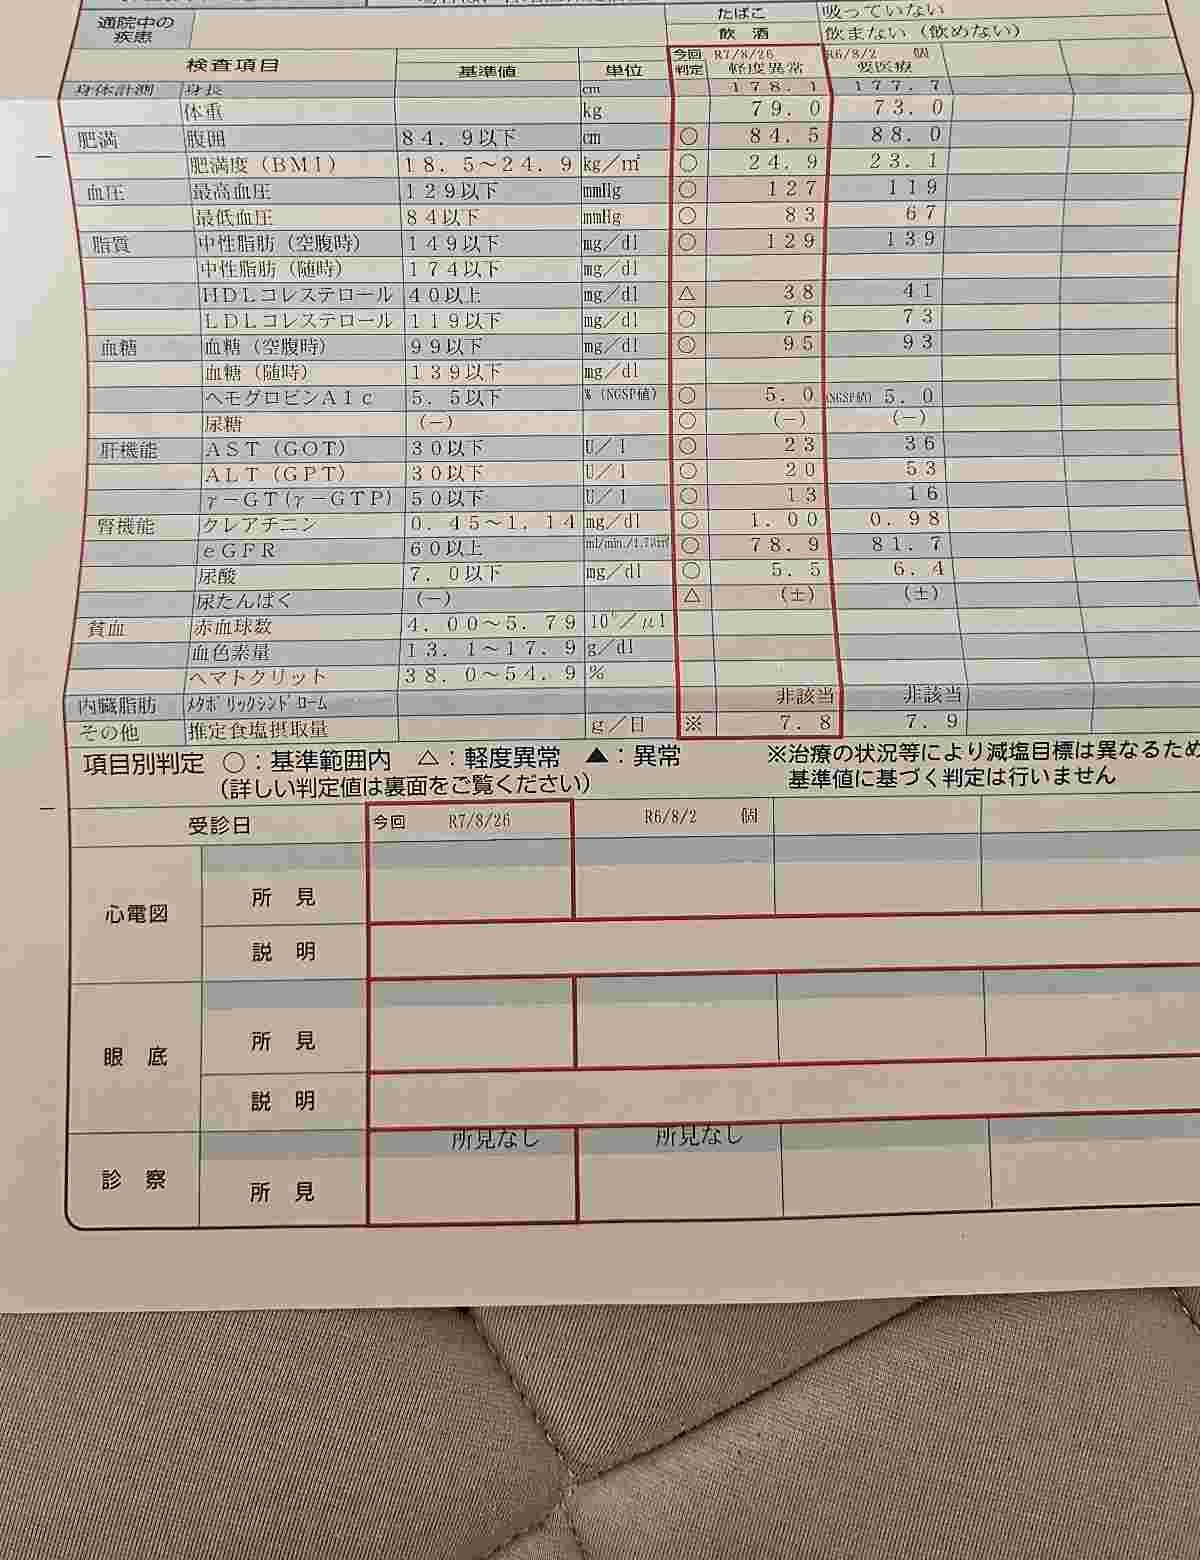 通院中の
疾患
たばこ 吸っていない
飲 酒 飲まない（飲めない）
検査項目 基準値 単位 今回 R7/8/26 R6/8/2 個
判定 軽度異常 要医療
身体計測 身長 cm 178.1 177.7
体重 kg 79.0 73.0
肥満 腹囲 84.9以下 cm ○ 84.5 88.0
肥満度（BMI） 18.5～24.9 kg／㎡ ○ 24.9 23.1
血圧 最高血圧 129以下 mmHg ○ 127 119
最低血圧 84以下 mmHg ○ 83 67
脂質 中性脂肪（空腹時） 149以下 mg／dl ○ 129 139
中性脂肪（随時） 174以下 mg／dl
HDLコレステロール 40以上 mg／dl △ 38 41
LDLコレステロール 119以下 mg／dl ○ 76 73
血糖 血糖（空腹時） 99以下 mg／dl ○ 95 93
血糖（随時） 139以下 mg／dl
ヘモグロビンA1c 5.5以下 %（NGSP値） ○ 5.0 (NGSP値) 5.0
尿糖 （－） ○ （－） （－）
肝機能 AST（GOT） 30以下 U／l ○ 23 36
ALT（GPT） 30以下 U／l ○ 20 53
γ－GT(γ－GTP) 50以下 U／l ○ 13 16
腎機能 クレアチニン 0.45～1.14 mg／dl ○ 1.00 0.98
eGFR 60以上 ml/min./1.73㎡ ○ 78.9 81.7
尿酸 7.0以下 mg／dl ○ 5.5 6.4
尿たんぱく （－） △ （±） （±）
貧血 赤血球数 4.00～5.79 10⁶／μl
血色素量 13.1～17.9 g／dl
ヘマトクリット 38.0～54.9 %
内臓脂肪 ﾒﾀﾎﾞﾘｯｸｼﾝﾄﾞﾛｰﾑ 非該当 非該当
その他 推定食塩摂取量 g／日 ※ 7.8 7.9
項目別判定 ○：基準範囲内 △：軽度異常 ▲：異常 ※治療の状況等により減塩目標は異なるため
（詳しい判定値は裏面をご覧ください） 基準値に基づく判定は行いません
受診日 今回 R7/8/26 R6/8/2 個
心電図 所 見
説 明
眼 底 所 見
説 明
所見なし 所見なし
診 察 所 見